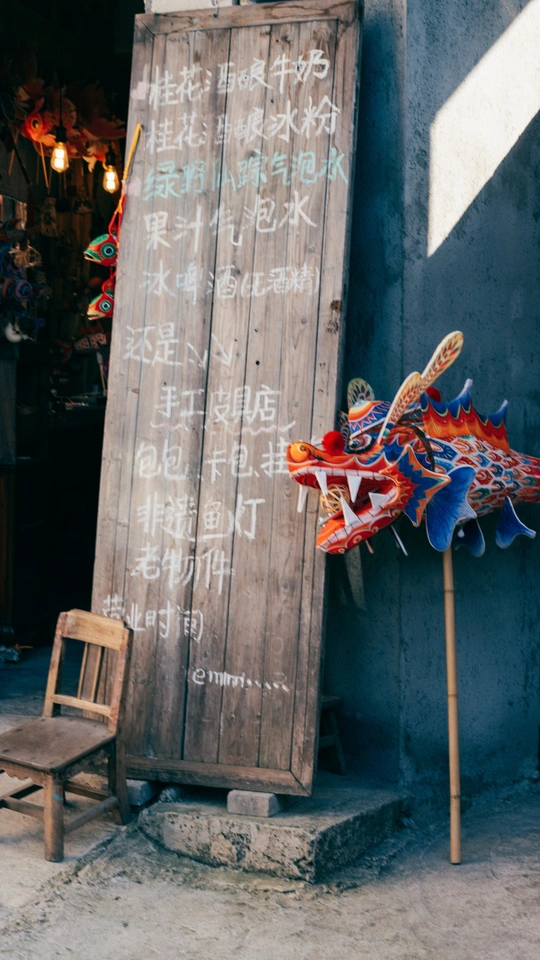 桂花酒酿牛奶
桂花酒酿冰粉
绿野仙踪气泡水
果汁气泡水
冰啤酒(无酒精)
还是
手工皮具店
包包、卡包、挂
非遗鱼灯
老物件
营业时间
emmm......